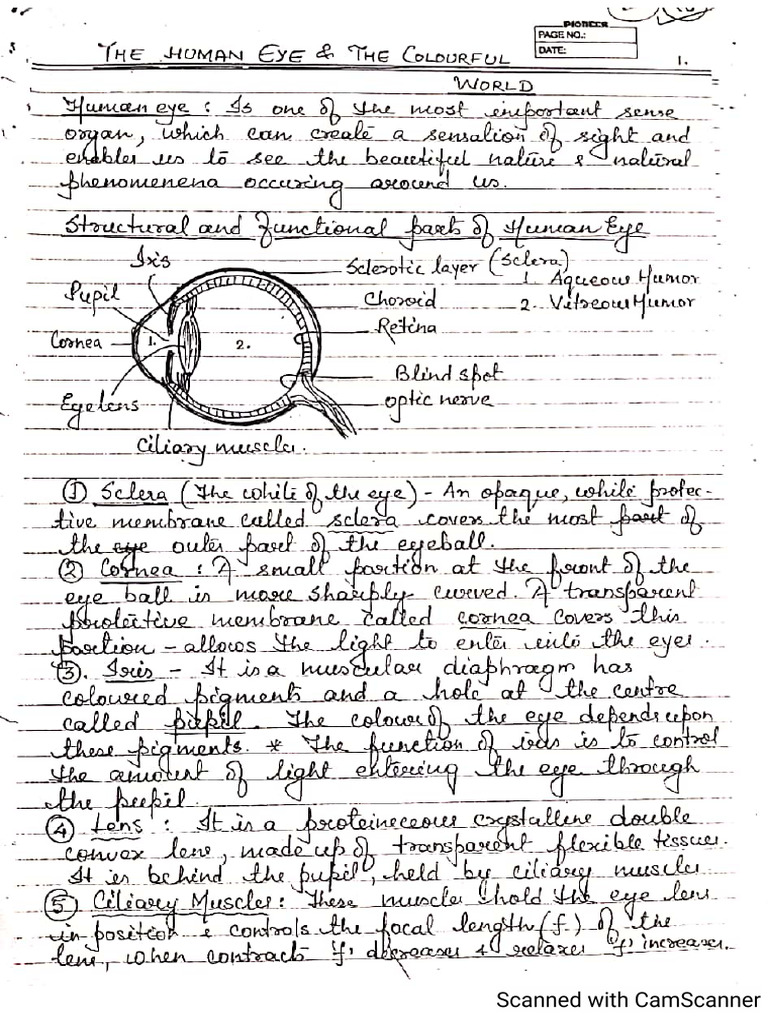 PIONEER
PAGE NO.:
DATE:
THE HUMAN EYE & THE COLOURFUL 1.
WORLD
Human eye : Is one of the most important sense
organ, which can create a sensation of sight and
enables us to see the beautiful nature & natural
phenomenena occuring around us.
Structural and Functional parts of Human Eye
Iris
Sclerotic layer (Sclera)
1. Aqueous Humor
Pupil
Choroid
2. Vitreous Humor
Retina
Cornea
1.
2.
Blind spot
Eye lens
optic nerve
Ciliary muscles.
① Sclera (The white of the eye) - An opaque, white protec-
tive membrane called sclera covers the most part of
the eye outer part of the eyeball.
② Cornea : A small portion at the front of the
eye ball is more sharply curved. A transparent
protective membrane called cornea covers this
portion - allows the light to enter into the eyes.
③. Iris - It is a muscular diaphragm has
coloured pigments and a hole at the centre
called pupil. The colour of the eye depends upon
these pigments. * The function of iris is to control
the amount of light entering the eye through
the pupil.
④ Lens : It is a proteineceous crystalline double
convex lens, made up of transparent flexible tissues.
It is behind the pupil, held by ciliary muscles
⑤ Ciliary Muscles : These muscles hold the eye lens
in position & controls the focal length (f) of the
lens, when contracts 'f' decreases & relaxes 'f' increases.
Scanned with CamScanner